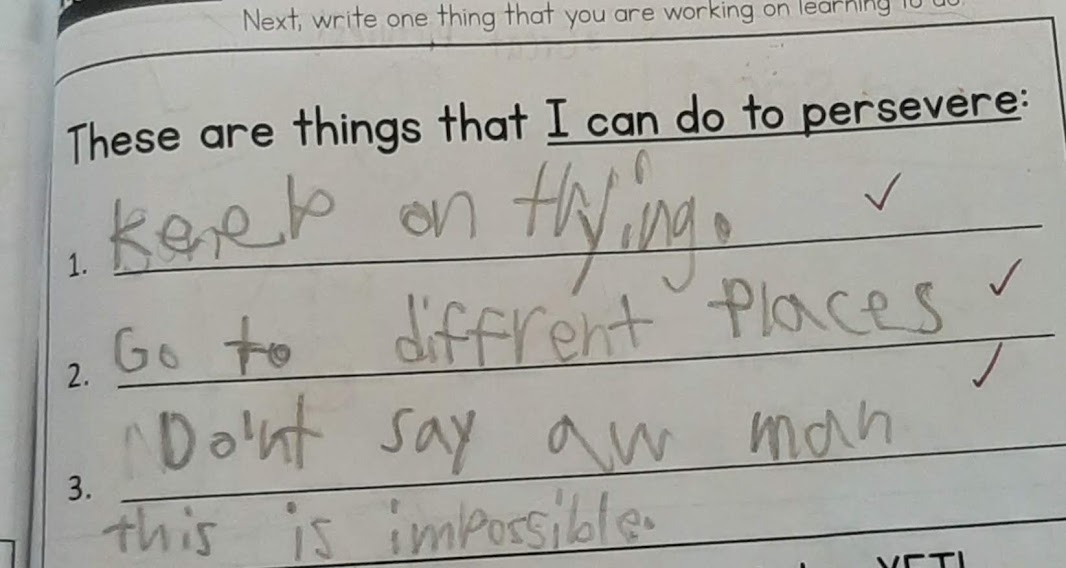 Next, write one thing that you are working on learning to do.
These are things that I can do to persevere:
1. Keep on trying.
2. Go to diffrent places
3. Do'nt say aw man
this is impossible.
YET!